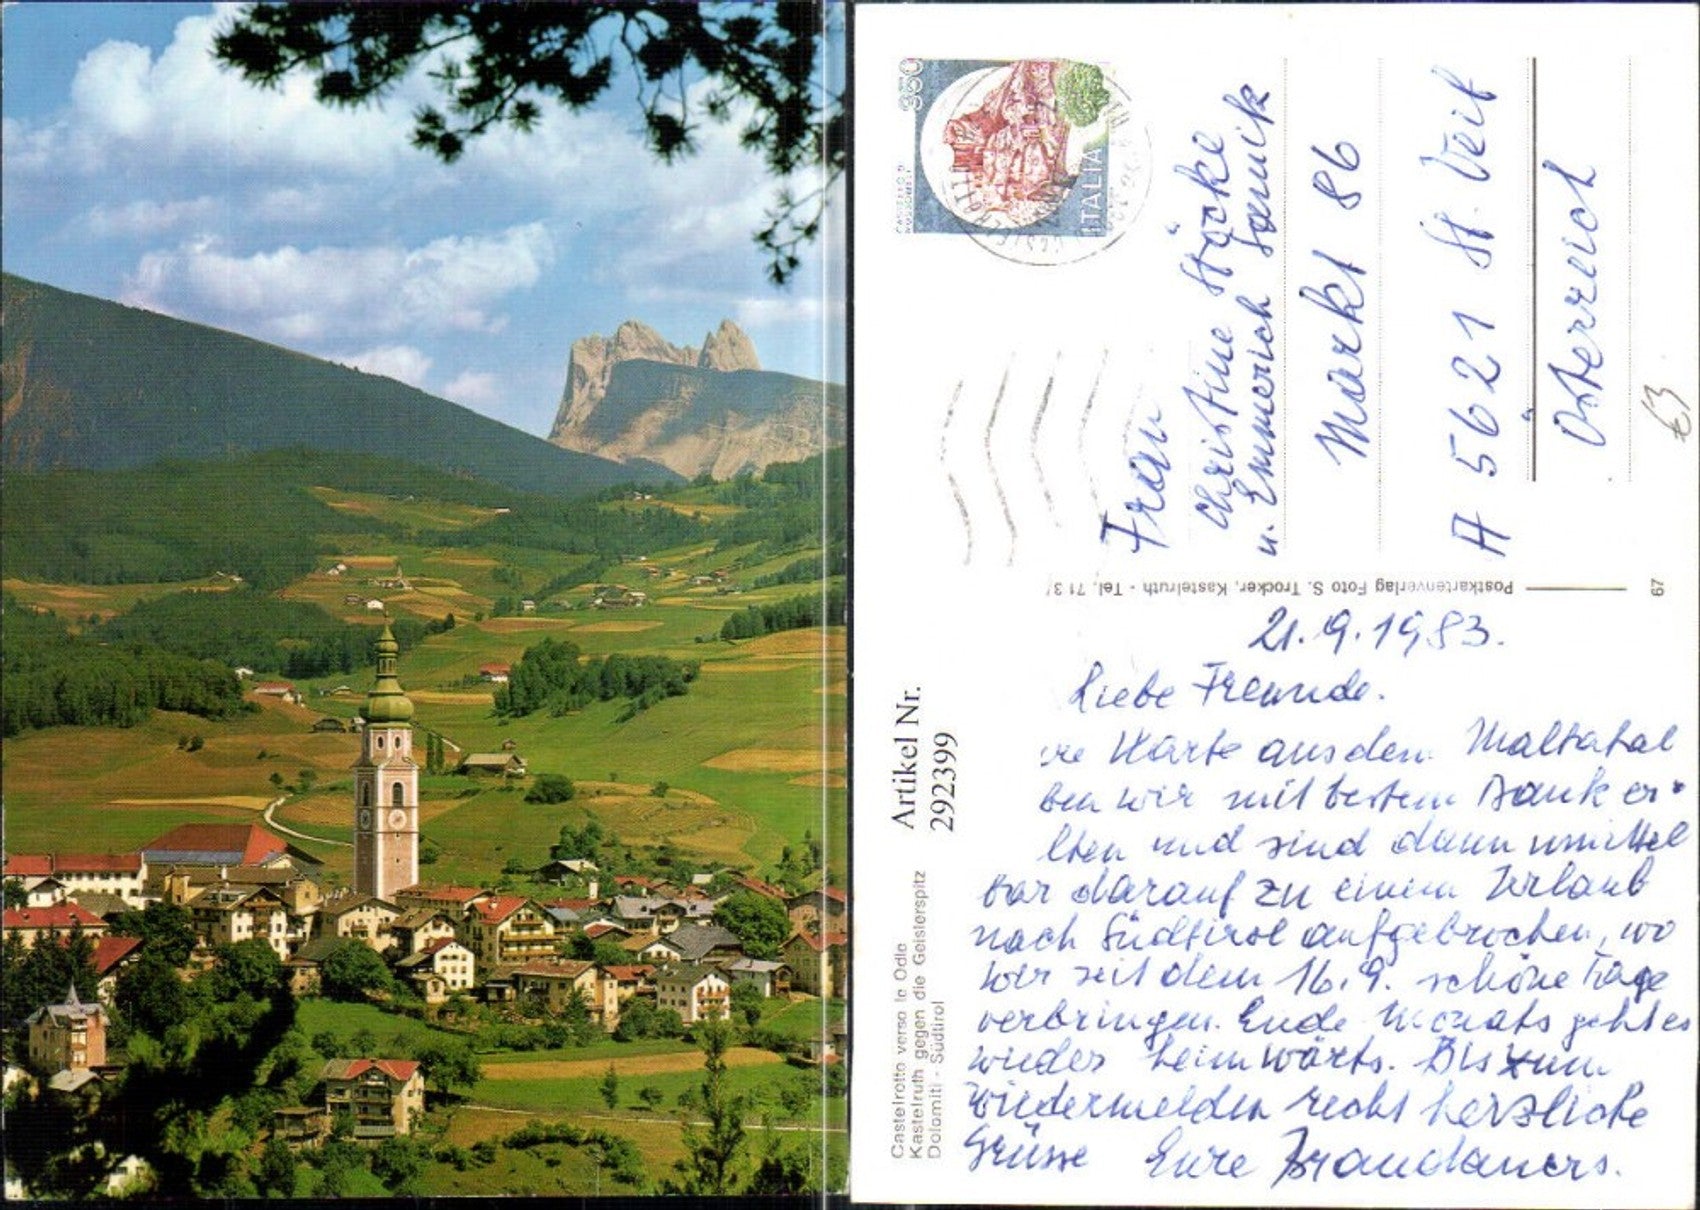 350
CASTELLO DI MUSSOMELI
ITALIA
Frau
Christine Stöckl
u. Emmerich
Markt 86
A 5621 St. Veit
Österreich
€3
Postkartenverlag Foto S. Trocker, Kastelruth - Tel. 71 3
67
Artikel Nr.
292399
Castelrotto verso le Odle
Kastelruth gegen die Geislerspitz
Dolomiti - Südtirol
21.9.1983.
Liebe Freunde.
re Karte aus dem Maltatal
ben wir mit bestem Dank er-
lten und sind dann unmittel
bar darauf zu einem Urlaub
nach Südtirol aufgebrochen, wo
wir seit dem 16.9. schöne Tage
verbringen. Ende Monats geht es
wieder heimwärts. Bis zum
Wiedermelden recht herzliche
Grüsse Eure Brandauers.